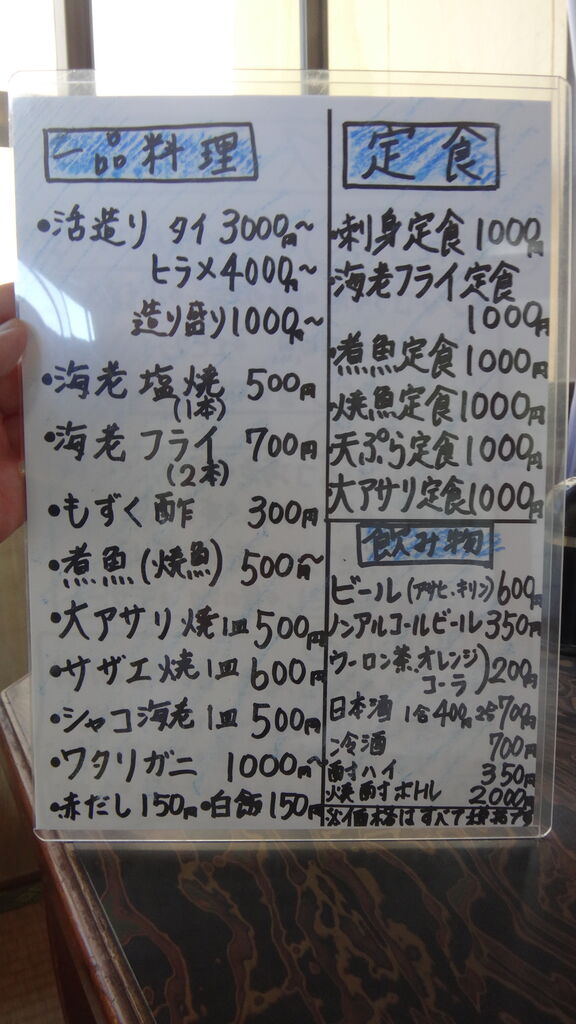 一品料理
・活造り タイ 3000円〜
ヒラメ 4000円〜
造り盛り 1000円〜
・海老 塩焼 500円
(1本)
・海老 フライ 700円
(2本)
・もずく酢 300円
・煮魚(焼魚) 500円〜
・大アサリ焼1皿 500円
・サザエ焼1皿 600円
・シャコ海老1皿 500円
・ワタリガニ 1000円〜
・赤だし150円・白飯150円
定食
・刺身定食 1000円
・海老フライ定食
1000円
・煮魚定食 1000円
・焼魚定食 1000円
・天ぷら定食 1000円
大アサリ定食 1000円
飲み物
ビール(アサヒ・キリン) 600円
ノンアルコールビール 350円
ウーロン茶、オレンジ
コーラ) 200円
日本酒 1合400円 2合700円
冷酒 700円
酎ハイ 350円
焼酎ボトル 2000円
※価格はすべて